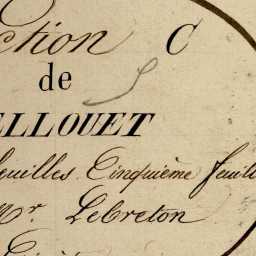 ction C
de
ELLOUET
feuilles. Cinquième feuille
Mr. LeBreton